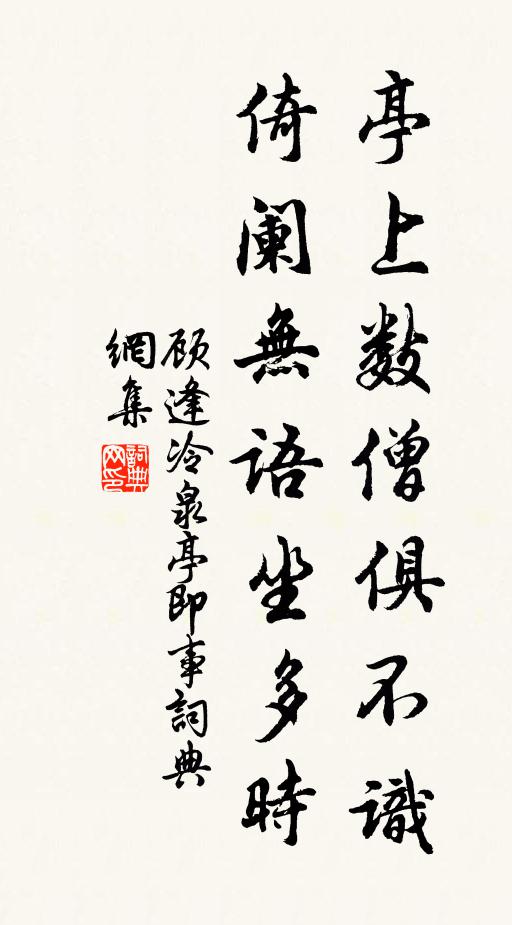 亭上数僧俱不識
倚阑無語坐多時
顾逢冷泉亭即事詞典
網集
詞典
网印